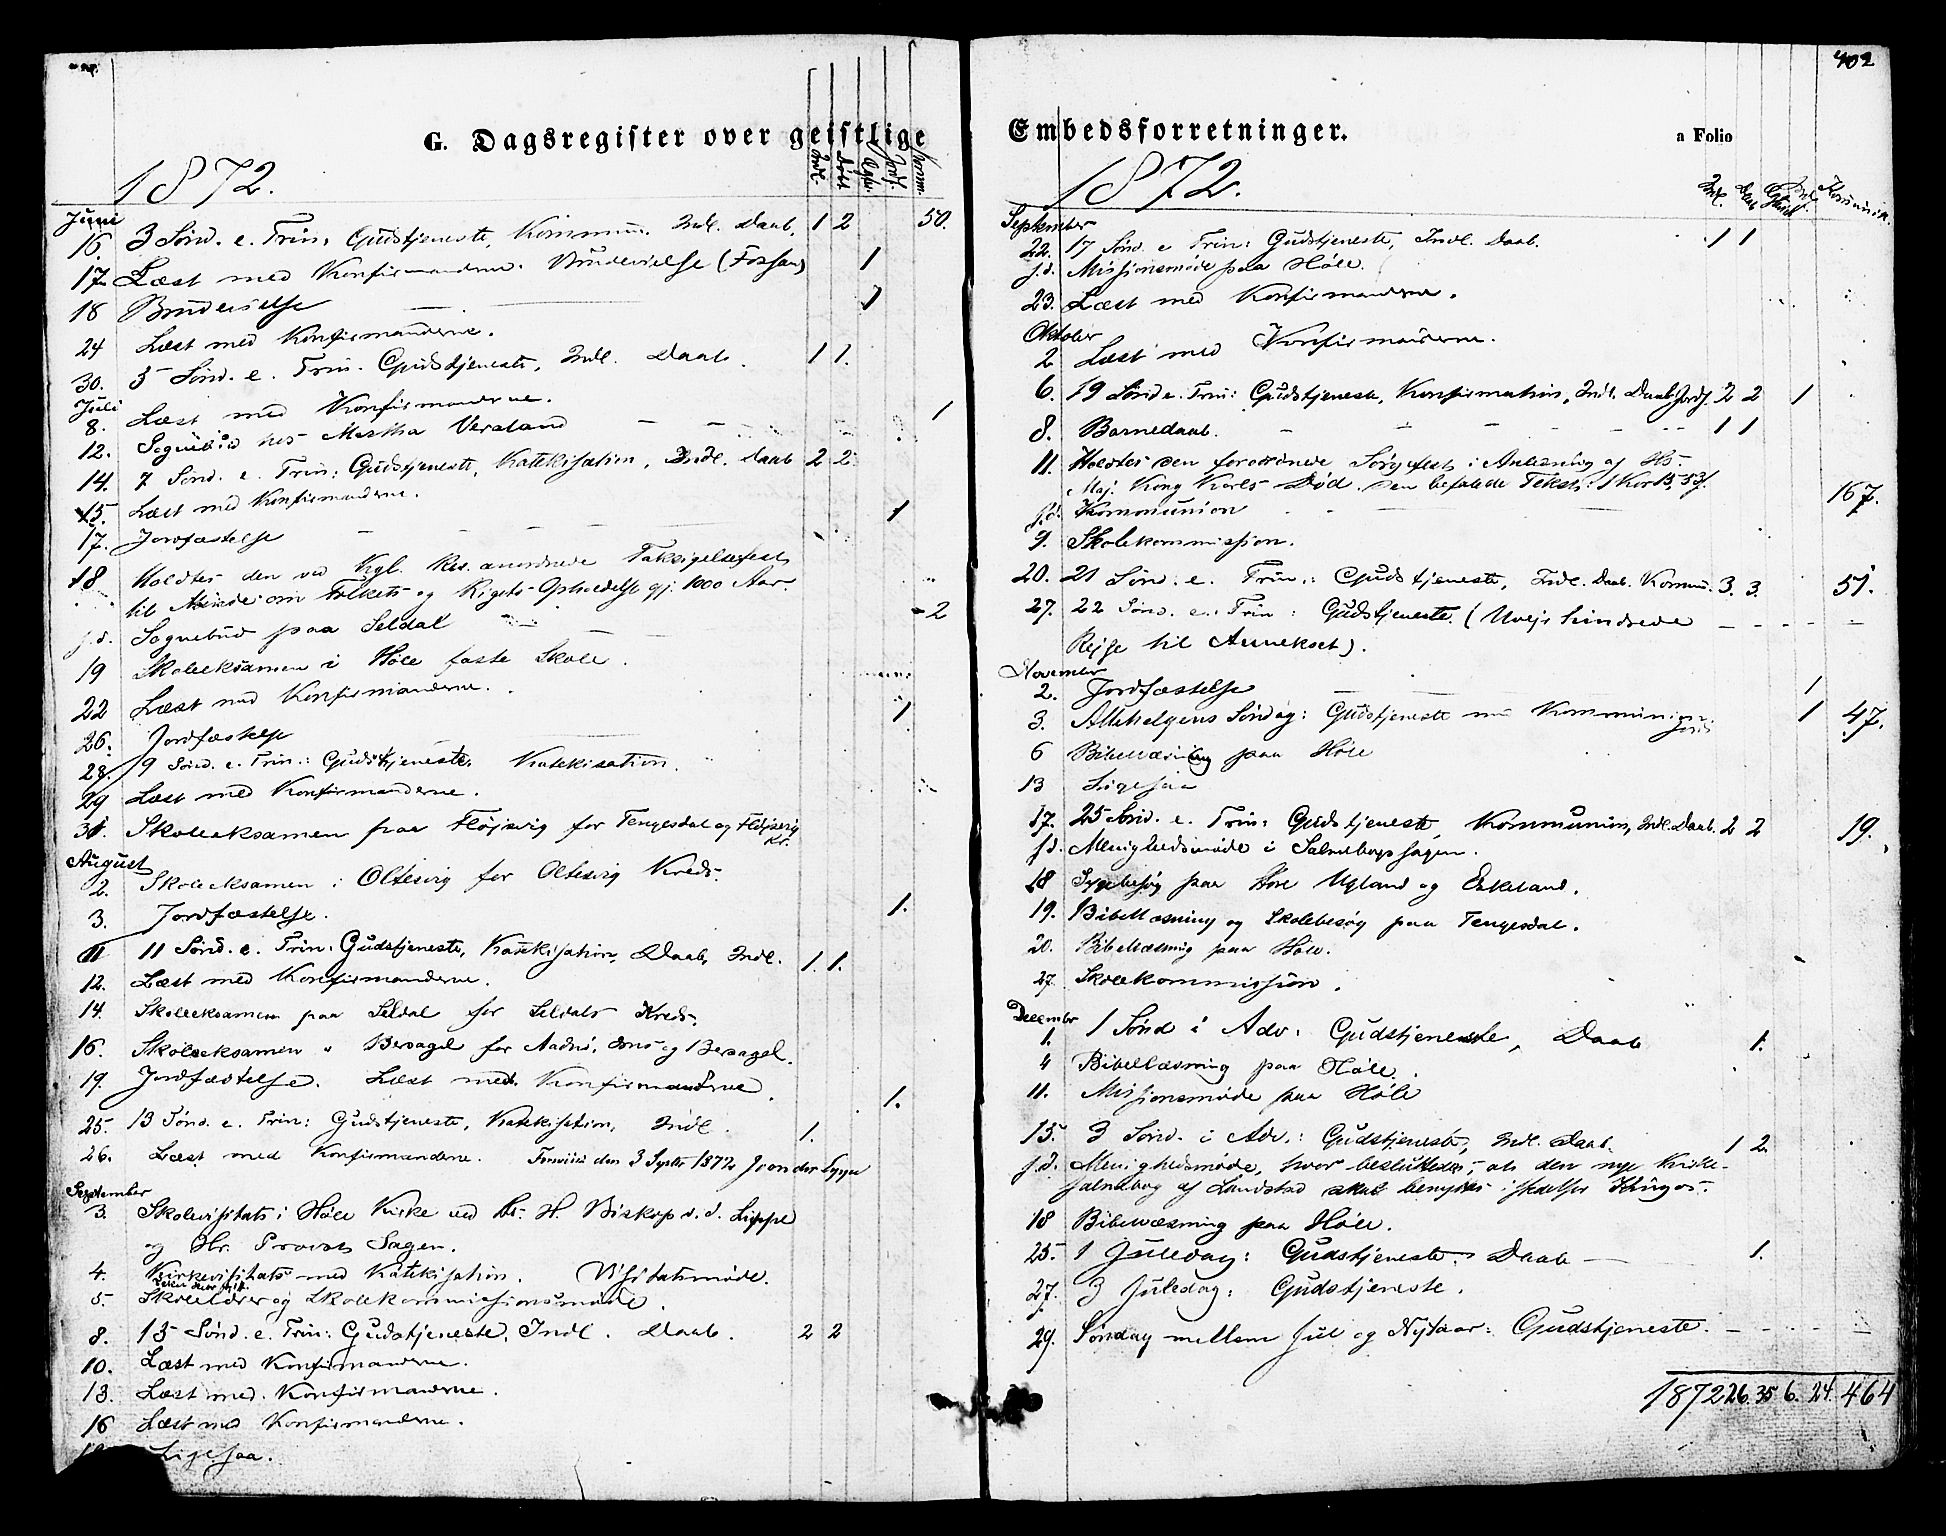 G. Dagsregister over geistlige
1872.
Indl. Døbt Jordf. Komm.
Juni
16. 3 Sønd. e. Trin: Gudstjeneste, Kommun. Indl. Daab, 1 2 50.
17. Læst med Konfirmanderne. Brudevielse (Fossan) 1
18 Brudevielse — 1
24 Læst med Konfirmanderne.
30. 5 Sønd. e. Trin. Gudstjeneste, Indl. Daab. 1 1.
Juli
8. Læst med Konfirmanderne.
12. Sognebud hos Martha Versland — — 1
14. 7 Sønd. e. Trin: Gudstjeneste, Katekisation, Indl. Daab 2 2
15. Læst med Konfirmanderne.
17. Jordfæstelse — — 1
18 Holdtes den ved Kgl. Res. anordnede Taksigelsesfest
til Minde om Folkets og Rigets Opholdelse gj. 1000 Aar.
s.d. Sognebud paa Seldal — 2
19 Skoleeksamen i Høle faste Skole.
22 Læst med Konfirmanderne.
26. Jordfæstelse — 1
28. 9 Sønd. e. Trin: Gudstjeneste. Katekisation.
29 Læst med Konfirmanderne.
31. Skoleeksamen paa Fløjsvig for Tengesdal og Fløjsvig Kr.
August
2. Skoleeksamen i Oltesvig for Oltesvig Kreds.
3. Jordfæstelse. 1.
11 11 Sønd. e. Trin: Gudstjeneste, Katekisation, Daab, Indl. 1. 1.
12. Læst med Konfirmanderne.
14. Skoleeksamen paa Seldal for Seldals Kreds.
16. Skoleeksamen " Bersagel for Aadnø, og Bersagel.
19. Jordfæstelse. Læst med Konfirmanderne. 1.
25. 13 Sønd. e. Trin: Gudstjeneste, Katekisation, Indl. 1.
26. Læst med Konfirmanderne. den 3 Septr 1872 J von der Lippe
September
3. Skolevisitats i Høle Kirke ved Hr. H. Biskop v. d. Lippe
og Hr. Provst Sagen.
4. Kirkevisitats med Katekisation. Visitatsmøde.
5. Skolelærer og Skolekommissionsmøde.
8. 15 Sønd. e. Trin: Gudstjeneste, Indl. Daab. 2 2
10. Læst med Konfirmanderne.
13. Læst med Konfirmanderne.
16 Læst med Konfirmanderne.
Ligesaa.
Embedsforretninger. a Folio
402
1872.
September
22. 17 Sønd. e Trin: Gudstjeneste, Indl. Daab. 1 1
s.d. Missionsmøde paa Høle.
23. Læst med Konfirmanderne.
Oktober
2 Læst med Konfirmanderne.
6. 19 Sønd e. Trin: Gudstjeneste, Konfirmation, Indl. Daab. Jordf. 2 2 1
8. Barnedaab. — — — — 1 1
11. Holdtes den forordnede Sørgefest i Anledning af Hs.
Maj. Kong Karls Død. Den befalede Tekst: 1 Kor 15, 53 f.
s.d. Kommunion — — 167.
9. Skolekommission.
20. 21 Sønd. e. Trin.: Gudstjeneste, Indl. Daab. Kommun. 3. 3. 51.
27. 22 Sønd. e. Trin: Gudstjeneste. (Uvejr hindrede — — — —
Rejse til Annekset).
November
2. Jordfæstelse — — — 1
3. Allehelgens Søndag: Gudstjeneste m Kommunion. Jordf 1 47.
6 Bibellæsning paa Høle
13 Ligesaa
17. 25 Sønd. e. Trin: Gudstjeneste, Kommunion, Indl. Daab. 2 2 19.
s.d. Menighedsmøde i Salmebogssagen.
18 Sygebesøg paa Øvre Ugland og Eskeland.
19. Bibellæsning og Skolebesøg paa Tengesdal.
20. Bibellæsning paa Høle.
27. Skolekommission.
December
1. 1 Sønd i Adv: Gudstjeneste, Daab 1.
4 Bibellæsning paa Høle.
11. Missionsmøde paa Høle
15. 3 Sønd. i Adv.: Gudstjeneste, Indl. Daab. 1 2.
s.d. Menighedsmøde, hvor besluttedes, at den nye Kirke-
salmebog af Landstad skal benyttes istedetfor Kingos.
18 Bibellæsning paa Høle.
25. 1 Juledag: Gudstjeneste. Daab — 1.
27. 3 Juledag: Gudstjeneste.
29. Søndag mellem Jul og Nytaar: Gudstjeneste. — — — —
1872 26. 35 6. 24. 464